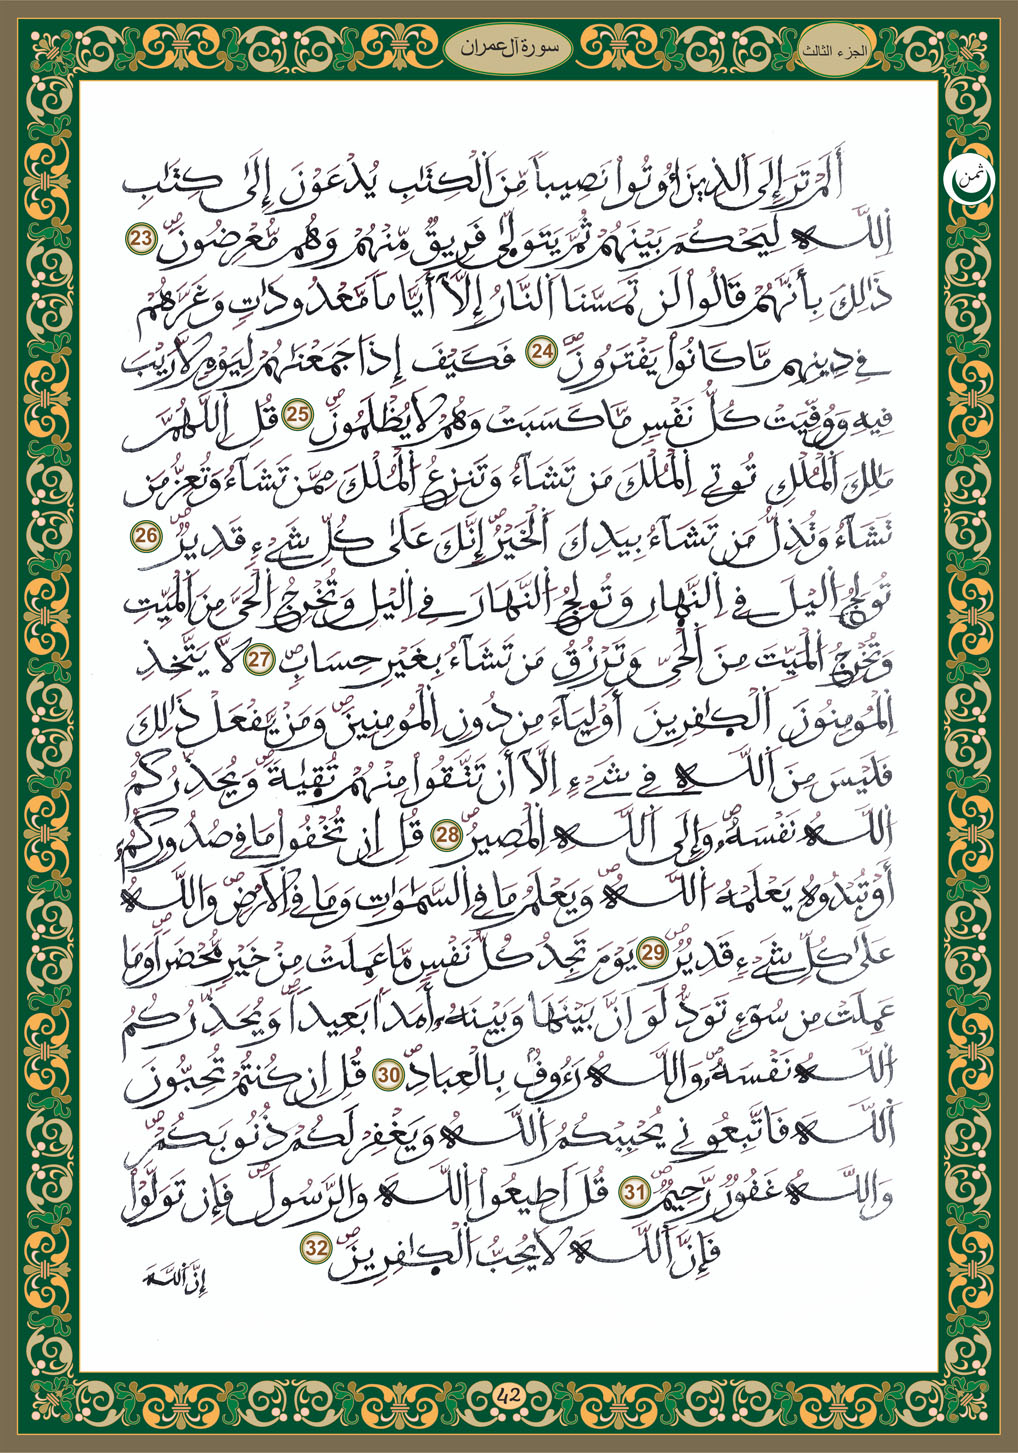 الجزء الثالث
سورة آل عمران
ثمن
أَلَمْ تَرَ إِلَى اَ۬لذِينَ أُوتُواْ نَصِيباٗ مِّنَ اَ۬لْكِتَٰبِ يُدْعَوْنَ إِلَىٰ كِتَٰبِ
اِ۬للَّهِ لِيَحْكُمَ بَيْنَهُمْ ثُمَّ يَتَوَلَّىٰ فَرِيقٞ مِّنْهُمْ وَهُم مُّعْرِضُونَۖ 23
ذَٰلِكَ بِأَنَّهُمْ قَالُواْ لَن تَمَسَّنَا اَ۬لنَّارُ إِلَّآ أَيَّاماٗ مَّعْدُودَٰتٖ وَغَرَّهُمْ
فِے دِينِهِم مَّا كَانُواْ يَفْتَرُونَۖ 24 فَكَيْفَ إِذَا جَمَعْنَٰهُمْ لِيَوْمٖ لَّا رَيْبَ
فِيهِ وَوُفِّيَتْ كُلُّ نَفْسٖ مَّا كَسَبَتْ وَهُمْ لَا يُظْلَمُونَۖ 25 قُلِ اِ۬للَّهُمَّ
مَٰلِكَ اَ۬لْمُلْكِ تُوتِے اِ۬لْمُلْكَ مَن تَشَآءُ وَتَنزِعُ اُ۬لْمُلْكَ مِمَّن تَشَآءُ وَتُعِزُّ مَن
تَشَآءُ وَتُذِلُّ مَن تَشَآءُ بِيَدِكَ اَ۬لْخَيْرُۖ إِنَّكَ عَلَىٰ كُلِّ شَےْءٖ قَدِيرٞۖ 26
تُولِجُ اُ۬ليْلَ فِے اِ۬لنَّهارِ وَتُولِجُ اُ۬لنَّهَارَ فِے اِ۬ليْلِ وَتُخْرِجُ اُ۬لْحَيَّ مِنَ اَ۬لْمَيِّتِ
وَتُخْرِجُ اُ۬لْمَيِّتَ مِنَ اَ۬لْحَيِّ وَتَرْزُقُ مَن تَشَآءُ بِغَيْرِ حِسَابٖۖ 27 لَّا يَتَّخِذِ
اِ۬لْمُومِنُونَ اَ۬لْكٰ۪فِرِينَ أَوْلِيَآءَ مِن دُونِ اِ۬لْمُومِنِينَۖ وَمَنْ يَّفْعَلْ ذَٰلِكَ
فَلَيْسَ مِنَ اَ۬للَّهِ فِے شَےْءٍ اِلَّآ أَن تَتَّقُواْ مِنْهُمْ تُقِيٰةٗۖ وَيُحَذِّرُكُمُ
اُ۬للَّهُ نَفْسَهُۥۖ وَإِلَى اَ۬للَّهِ اِ۬لْمَصِيرُۖ 28 قُلِ اِن تُخْفُواْ مَا فِے صُدُورِكُمُۥٓ
أَوْ تُبْدُوهُ يَعْلَمْهُ اُ۬للَّهُۖ وَيَعْلَمُ مَا فِے اِ۬لسَّمَٰوَٰتِ وَمَا فِے اِ۬لَارْضِۖ وَاللَّهُ
عَلَىٰ كُلِّ شَےْءٖ قَدِيرٞۖ 29 يَوْمَ تَجِدُ كُلُّ نَفْسٖ مَّا عَمِلَتْ مِنْ خَيْرٖ مُّحْضَراٗ وَمَا
عَمِلَتْ مِن سُوٓءٖ تَوَدُّ لَوَ اَنَّ بَيْنَهَا وَبَيْنَهُۥٓ أَمَداَۢ بَعِيداٗۖ وَيُحَذِّرُكُمُ
اُ۬للَّهُ نَفْسَهُۥۖ وَاللَّهُ رَءُوفُۢ بِالْعِبَادِۖ 30 قُلِ اِن كُنتُمْ تُحِبُّونَ
اَ۬للَّهَ فَاتَّبِعُونِے يُحْبِبْكُمُ اُ۬للَّهُ وَيَغْفِرْ لَكُمْ ذُنُوبَكُمْۖ
وَاللَّهُ غَفُورٞ رَّحِيمٞۖ 31 قُلَ اَطِيعُواْ اُ۬للَّهَ وَالرَّسُولَۖ فَإِن تَوَلَّوْاْ
فَإِنَّ اَ۬للَّهَ لَا يُحِبُّ اُ۬لْكٰ۪فِرِينَۖ 32
إِنَّ اَ۬للَّهَ
42